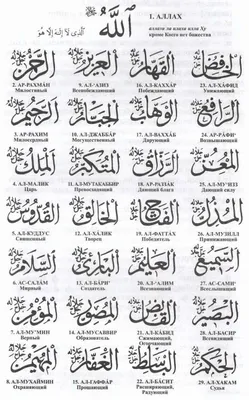 الله
الذي لا إله إلا هو
1. АЛЛАХ
кроме Коего нет божества
الرحمن العزيز القهار الخافض
2. АР-РАХМАН 9. АЛ-'АЗИЗ 16. АЛ-КАХХАР 23. АЛ-ХАФИД
Милостивый Всепобеждающий Унижающий
الرحيم الجبار الوهاب الرافع
3. АР-РАХИМ 10. АЛ-ДЖАББАР 17. АЛ-ВАХХАБ 24. АР-РАФИ'
Милосердный Могущественный Дарующий Возвышающий
الملك المتكبر الرزاق المعز
4. АЛ-МАЛИК 11. АЛ-МУТАКАББИР 18. АР-РАЗЗАК 25. АЛ-МУ'ИЗЗ
Царь Превосходящий Дающий блага Дающий силу
القدوس الخالق الفتاح المذل
5. АЛ-КУДДУС 12. АЛ-ХАЛИК 19. АЛ-ФАТТАХ 26. АЛ-МУЗИЛЛ
Священный Творец Победитель Принижающий
السلام البارئ العليم السميع
6. АС-САЛАМ 13. АЛ-БАРИ' 20. АЛ-'АЛИМ 27. АС-САМИ'
Мирный Создатель Всезнающий Всеслышащий
المؤمن المصور القابض البصير
7. АЛ-МУ'МИН 14. АЛ-МУСАВВИР 21. АЛ-КАБИД 28. АЛ-БАСИР
Верный Образователь Сжимающий, Всевидящий
Опечаливающий
المهيمن الغفار الباسط الحكم
8. АЛ-МУХАЙМИН 15. АЛ-ГАФФАР 22. АЛ-БАСИТ 29. АЛ-ХАКАМ
Охраняющий Прощающий Расширяющий, Судья
Радующий